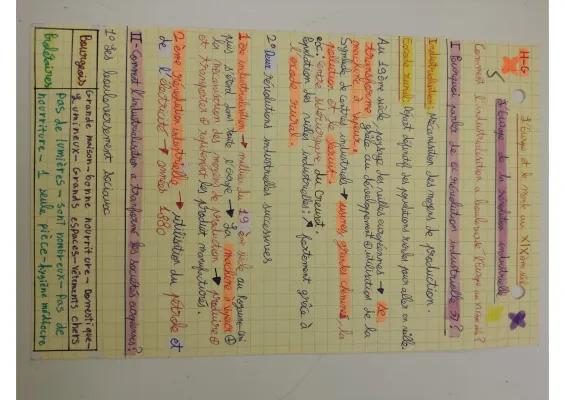 H-G
L'Europe et le monde au XIXème siècle
L'Europe de la révolution industrielle
Comment l'industrialisation a bouleversé l'Europe au XIXe siècle?
I Pourquoi parler de la révolution industrielle?
Industrialisation: Mécanisation des moyens de production.
Exode rural: Départ définitif des populations rurales pour aller en ville.
Au 19ème siècle, paysage des villes européennes → se
transforme grâce au développement et utilisation de la
machine à vapeur.
Symbole de centres industriels → usines, grandes cheminées, la
pollution et le
ex: Centre sidérurgique du Creusot.
Population des villes industrielles: ↗ fortement grâce à
l'exode rural.
2° Deux révolutions industrielles successives
1ère industrialisation → milieu du 19ème siècle au Royaume-Uni
puis s'étend dans toute l'Europe → La machine à vapeur ⊕
la mécanisation des moyens de production → produire ⊕
et transporter ⊕ rapidement les produit manufacturés.
2ème révolution industrielle → utilisation du pétrole et
de l'électricité → années 1880
II - Comment l'industrialisation a transformé les sociétés européennes?
1° Les bouleversement sociaux
Bourgeois
Grande maison - bonne nourriture - Domestique -
lumineux - Grands espaces - Vêtements chers
Prolétaires
Pas de lumières - sont nombreux - Pas de
nourriture - 1 seule pièce - hygiène médiocre